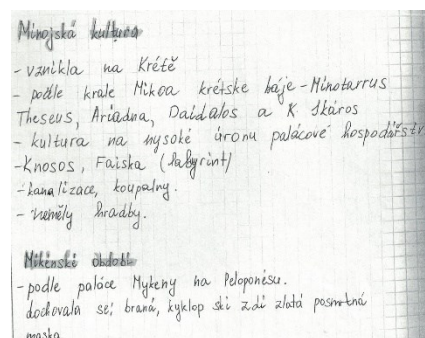 Minojská kultura
- vznikla na Krétě
- podle krále Mikoa krétske báje - Minotarrus
Theseus, Ariadna, Daidalos a K Ikáros
- kultura na vysoké úronu palácové hospodářstv
- Knosos, Faiska (labyrint)
- kanalizace, koupalny.
- neměly hradby.
Mikénské období
- podle paláce Mykeny na Peloponésu.
dochovala se: braná, kyklop ski zdi zlatá posmrtná
maska